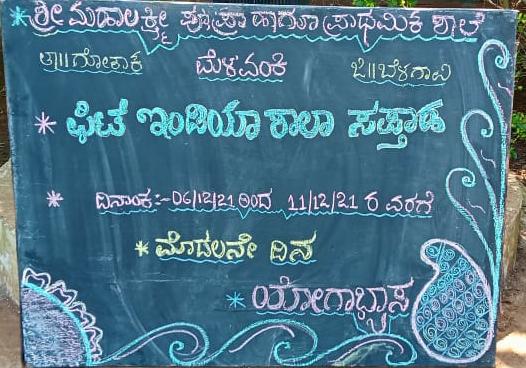 * ಶ್ರೀ ಮಹಾಲಕ್ಷ್ಮೀ ಪೂರ್ವ ಹಾಗೂ ಪ್ರಾಥಮಿಕ ಶಾಲೆ
ತಾ॥ ಗೋಕಾಕ ಮೆಳವಂಕಿ ಜಿ॥ ಬೆಳಗಾವಿ
* ಫಿಟ್ ಇಂಡಿಯಾ ಶಾಲಾ ಸಪ್ತಾಹ
* ದಿನಾಂಕ:- 06/12/21 ರಿಂದ 11/12/21 ರ ವರೆಗೆ
* ಮೊದಲನೇ ದಿನ
* ಯೋಗಾಭ್ಯಾಸ